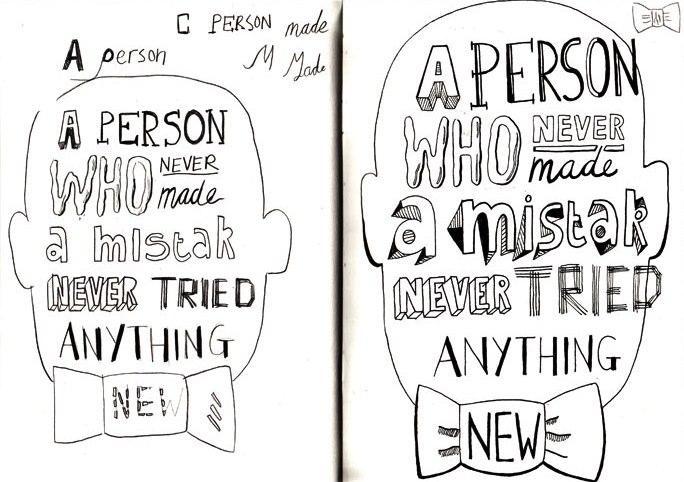 C PERSON made
A person M Made
A PERSON
WHO NEVER
made
a mistak
NEVER TRIED
ANYTHING
NEW
NEW
A PERSON
WHO NEVER
made
a mistak
NEVER TRIED
ANYTHING
NEW